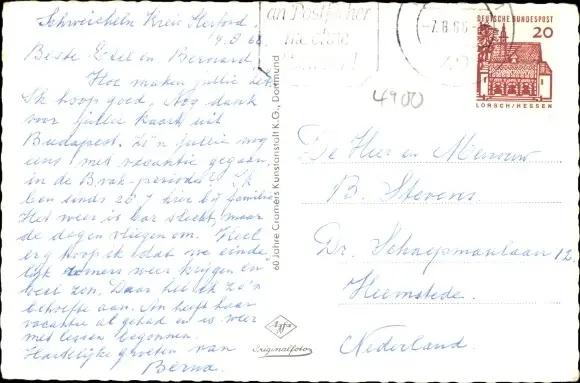 Schweicheln Kreis Herford.
9.8.66
Beste Edel en Bernard.
Hoe maken jullie het.
Ik hoop goed. Nog dank
voor jullie kaart uit
Budapest. Zijn jullie nog
eens met vacantie gegaan,
in de periode? Ik
ben sinds 20 7 hier bij familie
Het weer is slecht, maar
de dagen vliegen om. Heel
erg hoop ik dat we einde
lijk zomers weer krijgen en
veel zon. Daar heb ik zo'n
behoefte aan. An heeft haar
vacantie al gehad en is weer
met lessen begonnen.
Hartelijke groeten van
Berna.
60 Jahre Cramers Kunstanstalt K.G., Dortmund
Agfa
Originalfoto
an Postfächer
-7.8.66-
DEUTSCHE BUNDESPOST
20
LORSCH/HESSEN
4900
De Heer en Mevrouw
B. Stevens
Dr. Schaepmanlaan 12
Heemstede.
Nederland.